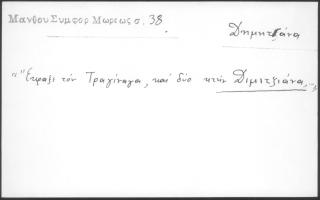 Μανθου Συμφορ Μωρεως σ. 38.
Δημητσάνα
"Έκραξε τὸν Τραγίναγα, καὶ δύο κτὴν Διμιτζιάνα,"